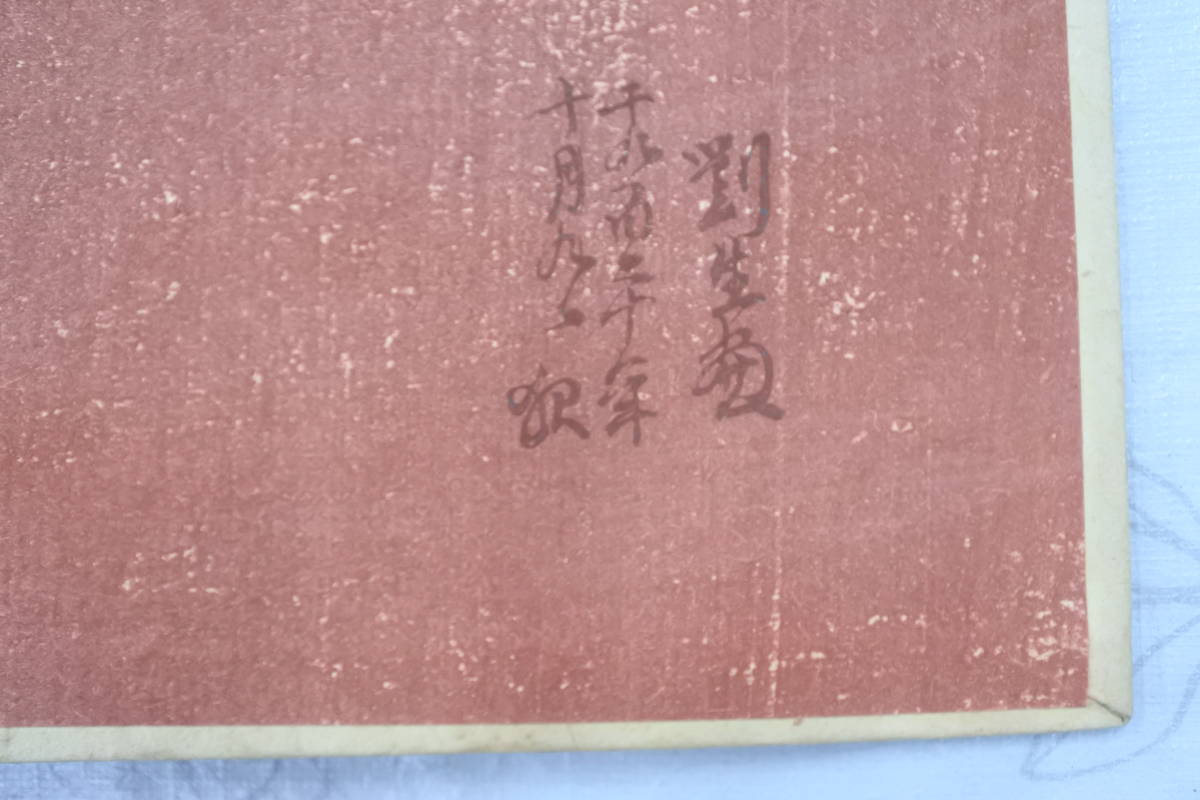 劉生画
千九百二十年
十月九